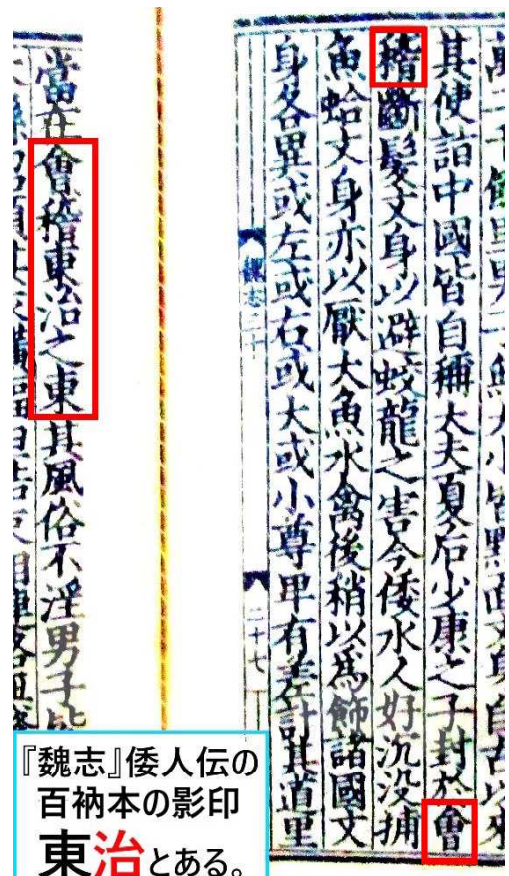 萬二千餘里男子無大小皆黥面文身自古以來
其使詣中國皆自稱大夫夏后少康之子封於會
稽斷髮文身以避蛟龍之害今倭水人好沉没捕
魚蛤文身亦以厭大魚水禽後稍以爲飾諸國文
身各異或左或右或大或小尊卑有差計其道里
魏志三十 二十七
當在會稽東治之東其風俗不淫男子皆
『魏志』倭人伝の
百衲本の影印
東治とある。